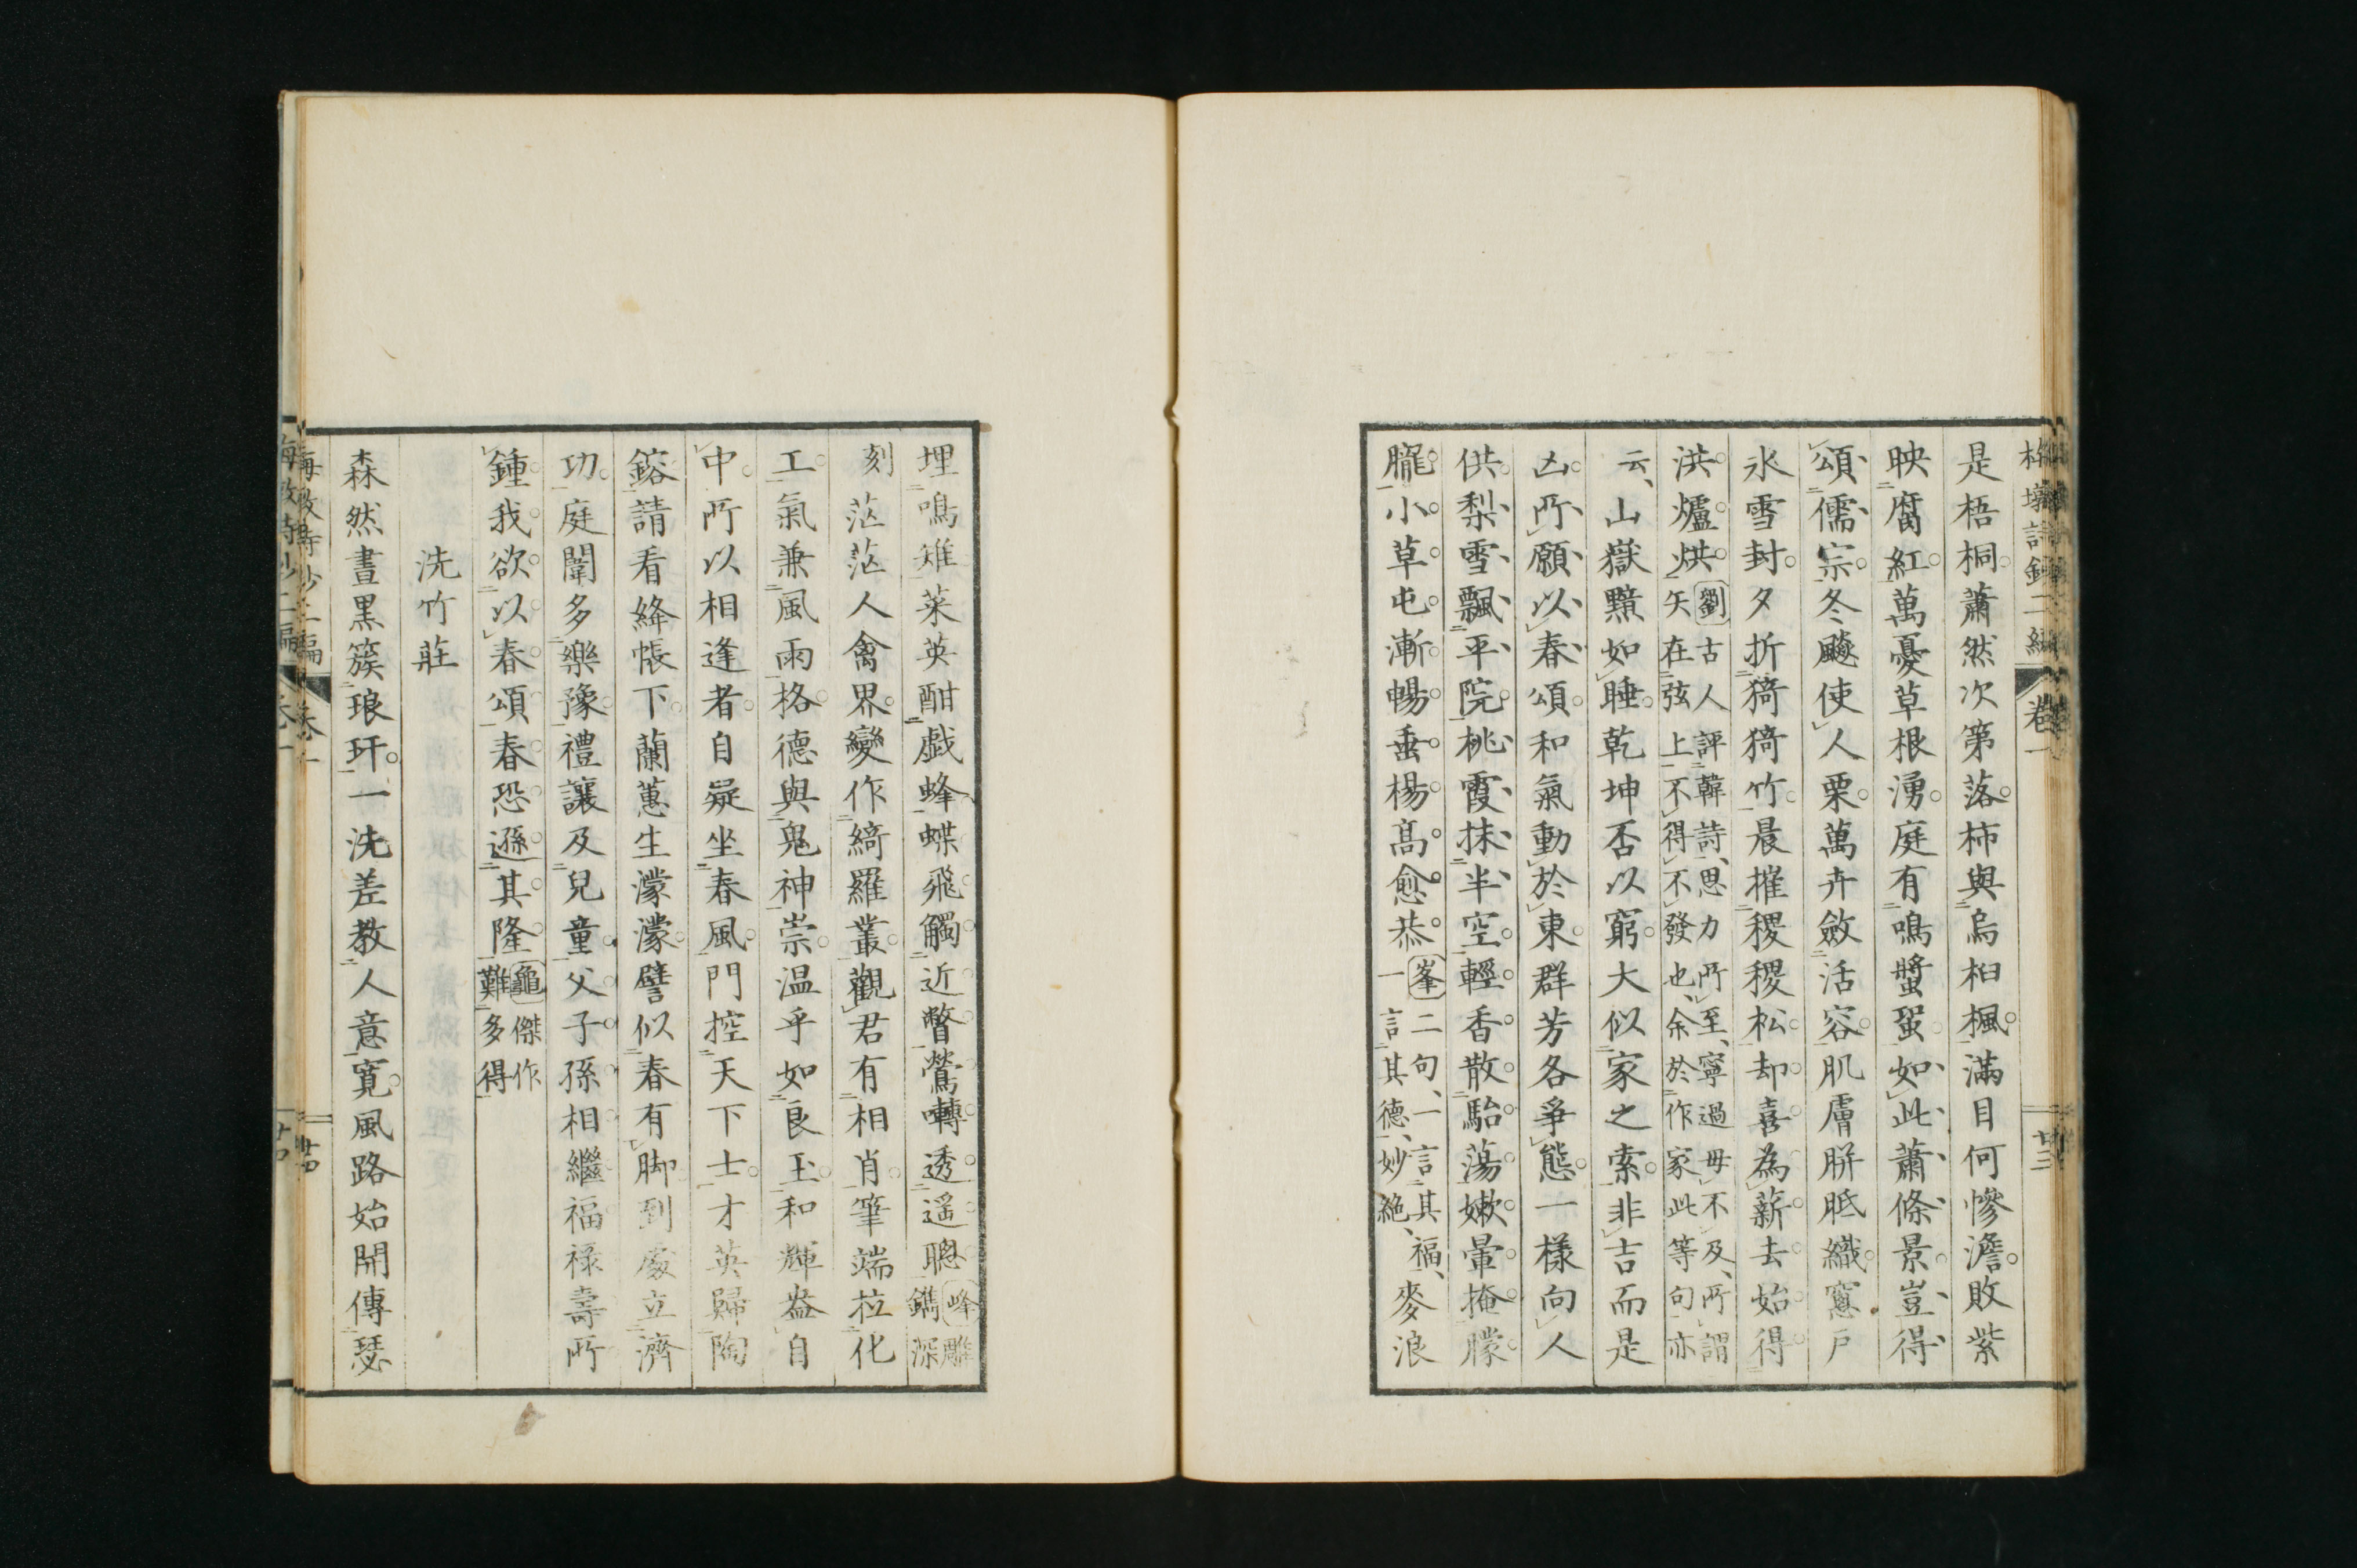 是梧桐蕭然次第落柿與烏桕楓滿目何慘澹敗紫
映腐紅萬憂草根湧庭有鳴螿蛩如此蕭條景豈得
頌儒宗冬飈使人栗萬卉斂活容肌膚胼胝纖窓戶
氷雪封夕折猗猗竹晨摧稷稷松却喜為薪去始得
洪爐烘劉古人評韓詩思力所至寧過毋不及所謂
矢在弦上不得不發也余於作家此等句亦
云山嶽黯如睡乾坤否以窮大似家之索非吉而是
凶所願以春頌和氣動於東群芳各爭態一樣向人
供梨雪飄平院桃霞抹半空輕香散駘蕩嫩暈掩朦
朧小草屯漸暢垂楊高愈恭峯二句一言其福
一言其德妙絕麥浪
埋鳴雉菜英酣戯蜂蝶飛觸近瞥鶯囀透遥聰峰雕
鐫深
刻茫茫人禽界變作綺羅叢觀君有相肖筆端拉化
工氣兼風雨格德與鬼神崇温乎如良玉和輝盎自
中所以相逢者自疑坐春風門控天下士才英歸陶
鎔請看絳帳下蘭蕙生濛濛譬似春有脚到處立濟
功庭闈多樂豫禮讓及兒童父子孫相繼福祿壽所
鍾我欲以春頌春恐遜其隆龜傑作
難多得
洗竹莊
森然晝黒簇琅玕一洗差教人意寬風路始開傳瑟
卷一
廿三
廿四